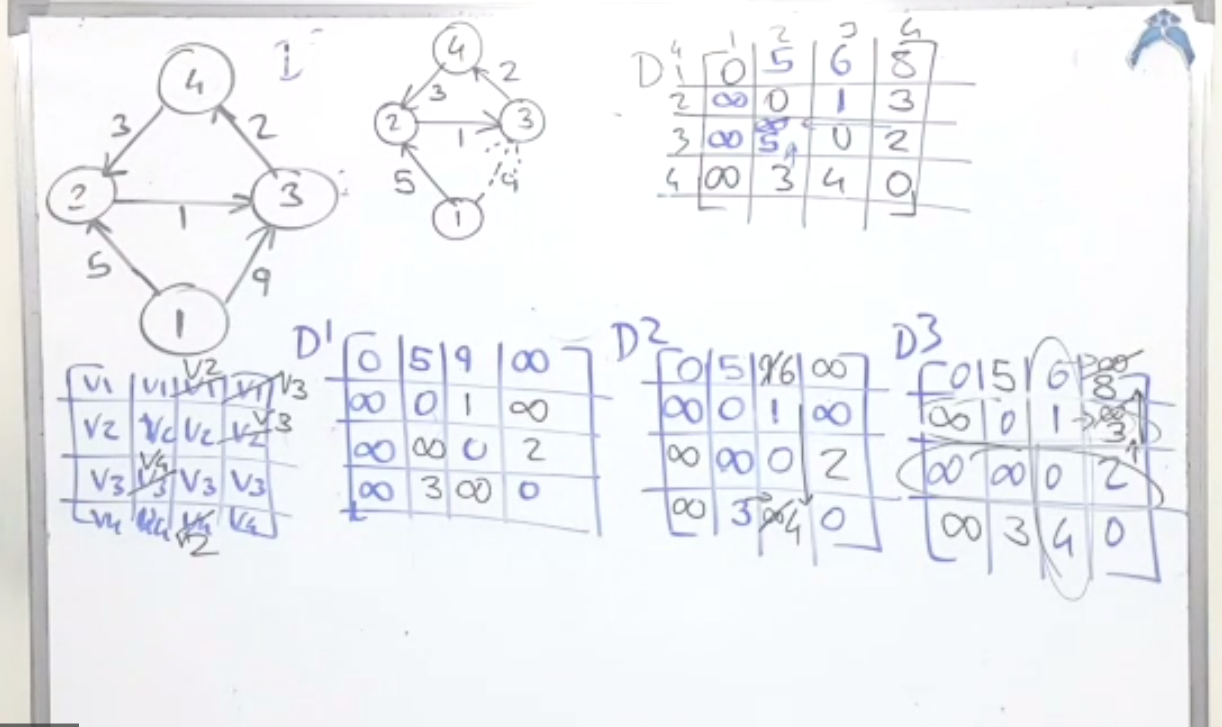 4
3 2
2 3
1
5 9
1
4
3 2
2 3
1
5 9
1
D4
1 2 3 4
1 0 5 6 8
2 ∞ 0 1 3
3 ∞ ∞ 5 0 2
4 ∞ 3 4 0
V2
V1 V1 V1 V1 V3
V3
V2 V2 V2 V2
V4
V3 V3 V3 V3
V4 V4 V4 V4
V2
D1
0 5 9 ∞
∞ 0 1 ∞
∞ ∞ 0 2
∞ 3 ∞ 0
D2
0 5 9 6 ∞
∞ 0 1 ∞
∞ ∞ 0 2
∞ 3 ∞ 4 0
D3
0 5 6 ∞
8
∞ 0 1 ∞
3
∞ ∞ 0 2
∞ 3 4 0